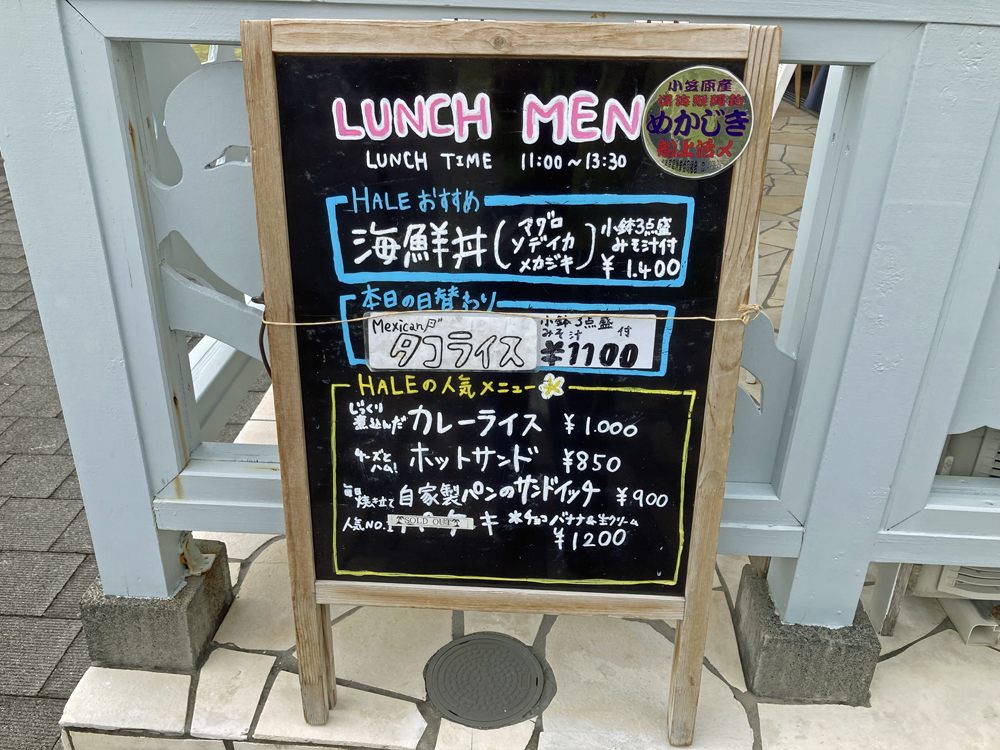 LUNCH MEN
LUNCH TIME 11:00~13:30
小笠原産
めかじき
船上活〆
HALE おすすめ
海鮮丼(マグロ ソデイカ メカジキ) 小鉢3点盛 みそ汁付
¥1.400
本日の日替わり
Mexicanダ
タコライス
小鉢3点盛
みそ汁 付
¥1100
HALEの人気メニュー
じっくり煮込んだ カレーライス ¥1.000
チーズとハム! ホットサンド ¥850
毎日焼き立て 自家製パンのサンドイッチ ¥900
人気NO.1 SOLD OUT ケーキ *チョコバナナ&生クリーム
¥1200